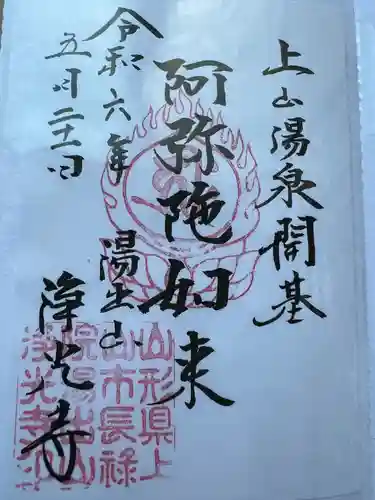 上山湯泉開基
阿弥陀如来
湯出山
浄光寺
令和六年
五月二十一日
山形県上
山市長禄
院湯出山
浄光寺印